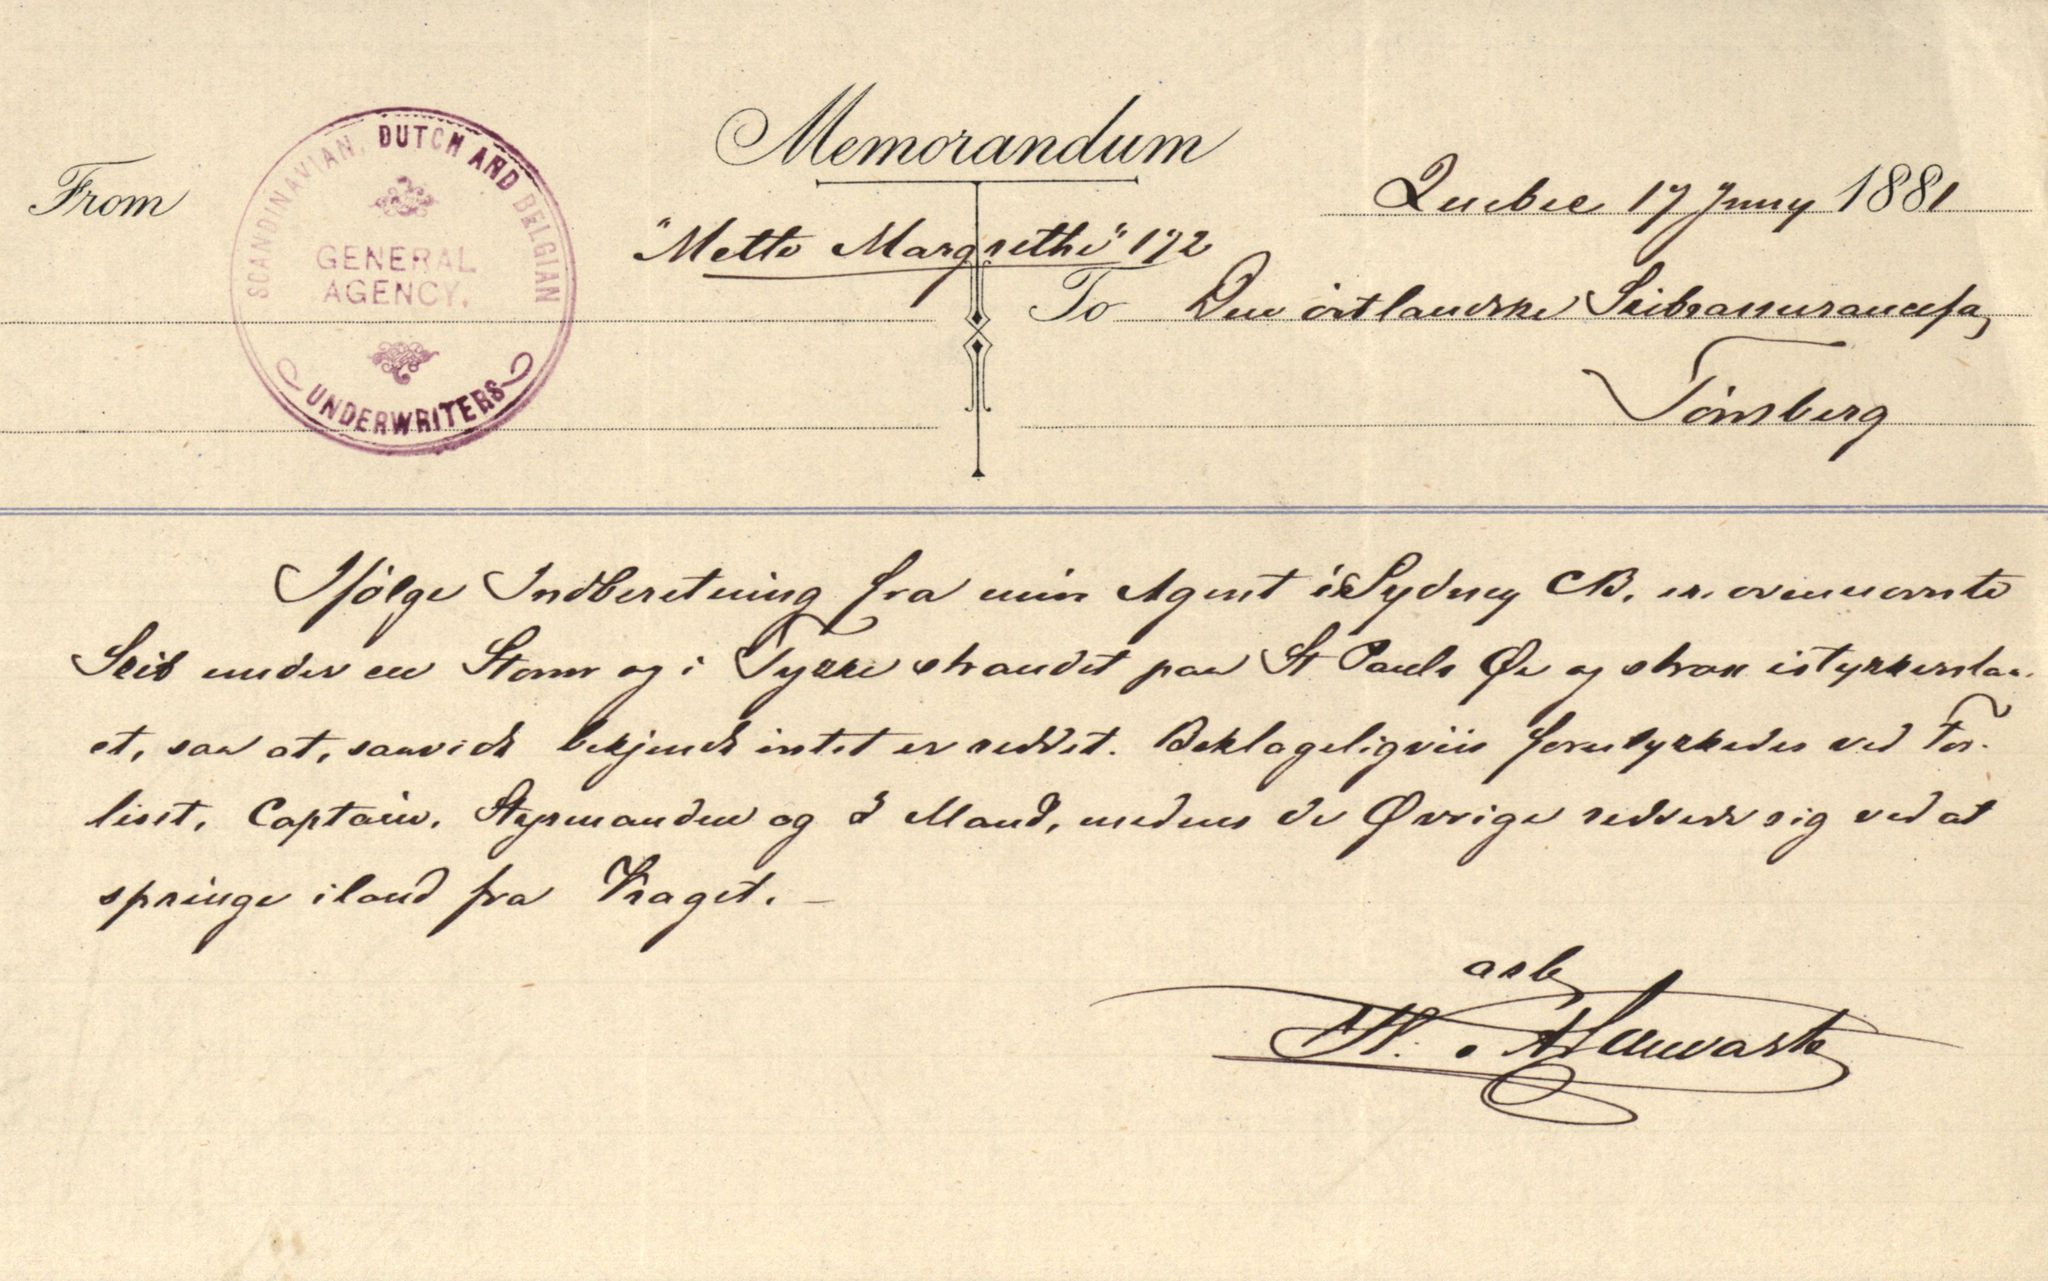 Memorandum
From
SCANDINAVIAN, DUTCH AND BELGIAN
GENERAL
AGENCY.
UNDERWRITERS
Quebec 17 Juny 1881
"Mette Margrethe" 172
To Den östlandske Skibsassurancefg
Tönsberg
Ifölge Indberetning fra min Agent i Sydney CB. er ovennævnte
Skib under en Storm og i Tykke strandet paa St Pauls Øe og strax istykkerslaa-
et, saa at, saavidt bekjendt intet er reddet. Beklageligviis forulykkedes ved For-
liset, Captain, Styrmanden og 2 Mand, medens de Øvrige reddede sig ved at
springe iland fra Vraget. —